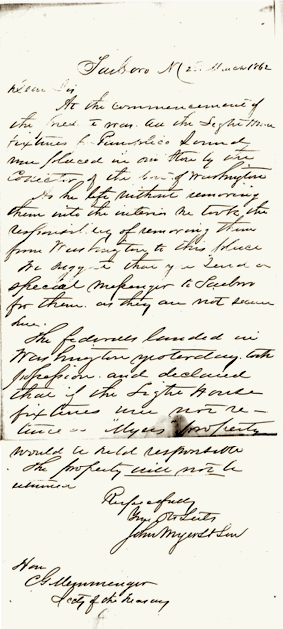 Tarboro NC 22 March 1862
Dear Sir
At the commencement of
the present war all the Light House
fixtures for Pamplico Sound
were placed in our store by the
Collector of the port of Washington
As he left without removing
them into the interior we took the
responsibility of removing them
from Washington to this place
We suggest that you send a
special messenger to Tarboro
for them. as they are not secure
here.
The federals landed in
Washington yesterday. took
possession. and declared
that if the Light House
fixtures were not re-
turned "Myers" property
would be held responsible
The property will not be
returned
Respectfully
Your Obt Svts
John Myers & Son
Hon
C G Memminger
Secty of the Treasury